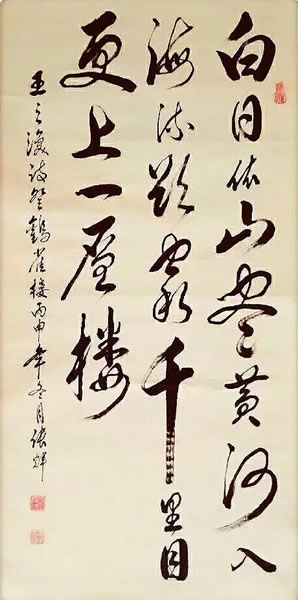 白日依山尽黄河入
海流欲穷千里目
更上一层楼
王之涣诗登鹳雀楼丙申年冬月张辉